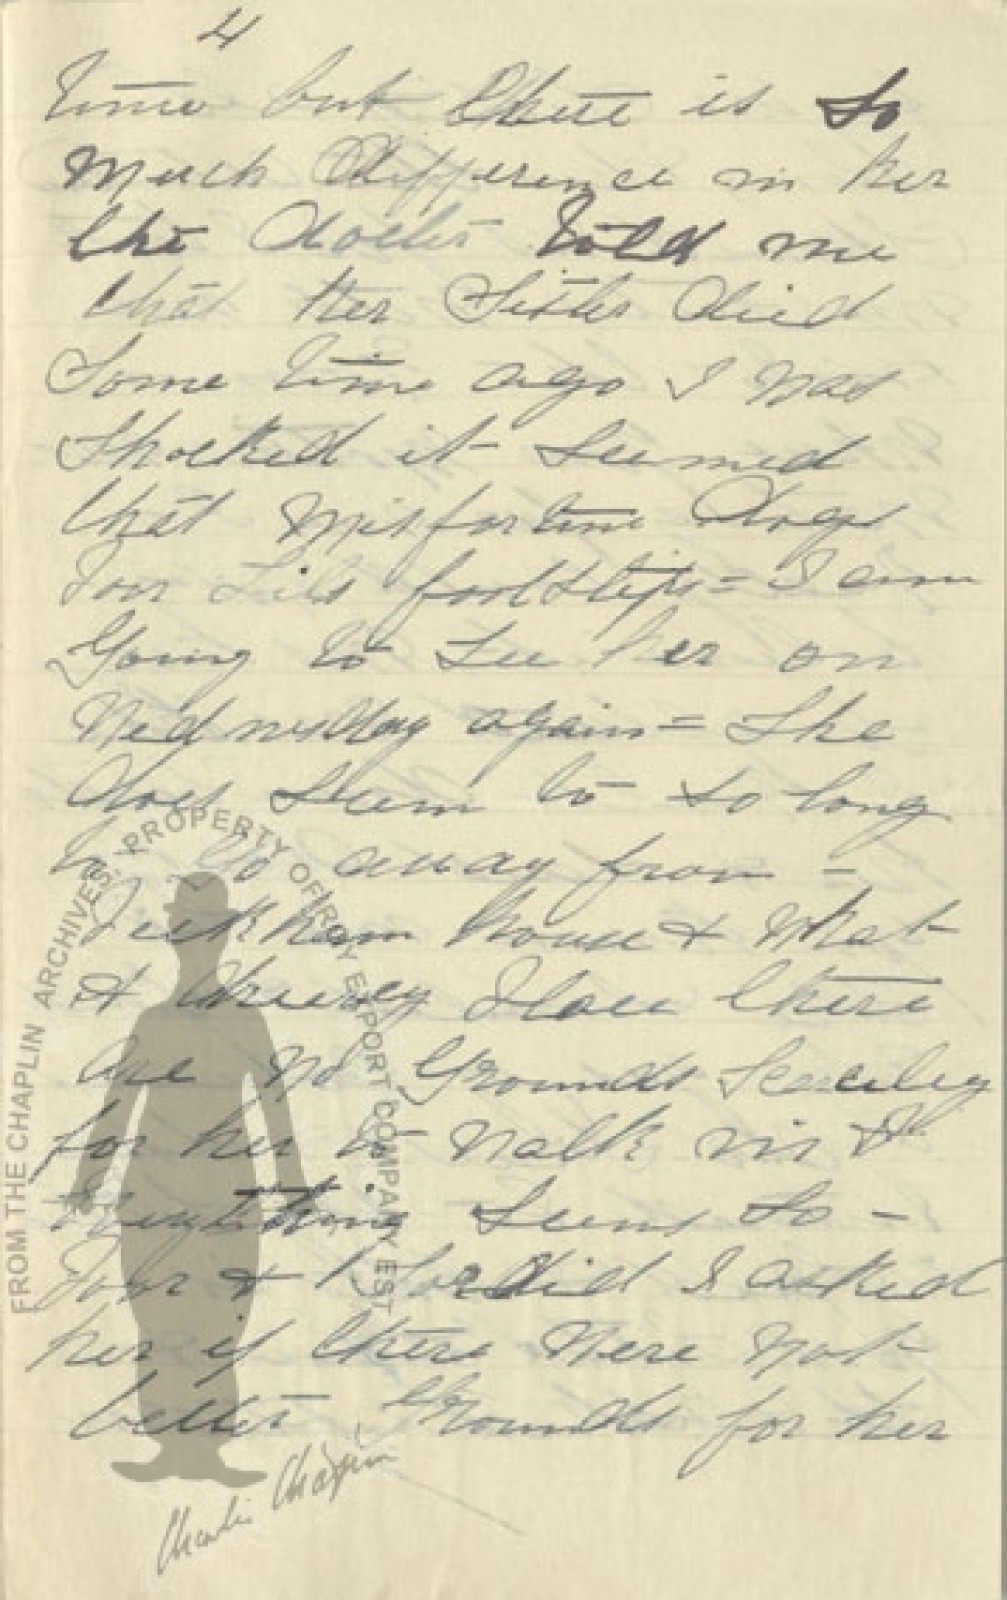 4
time but there is so
much difference in her
the doctor told me
that her Sister died
Some time ago I was
Shocked it seemed
that misfortune dogs
Poor Lil's footsteps = I am
Going to see her on
Wednesday again = She
does seem to so long
to go away from -
Peckham house & what
A dreary place there
are no Grounds Scarcely
for her to walk in &
Everything seems so -
Poor & Sordid I asked
her if there were not
better Grounds for her
FROM THE CHAPLIN ARCHIVES, PROPERTY OF ROY EXPORT COMPANY EST
Charlie Chaplin